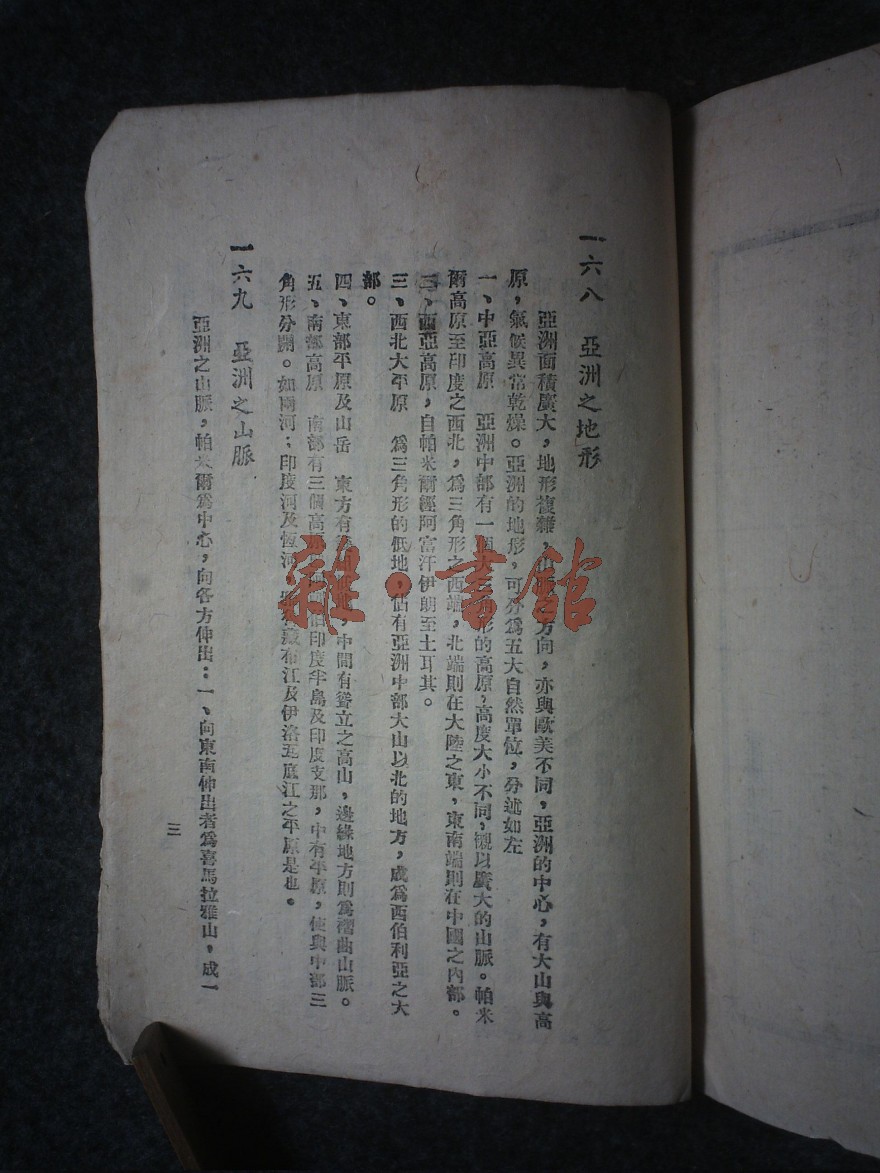 一六八 亞洲之地形
亞洲面積廣大，地形複雜，方向，亦與歐美不同，亞洲的中心，有大山與高
原，氣候異常乾燥。亞洲的地形，可分爲五大自然單位，分述如左
一、中亞高原 亞洲中部有一個大形的高原，高度大小不同，襯以廣大的山脈。帕米
爾高原至印度之西北，爲三角形之西端，北端則在大陸之東，東南端則在中國之內部。
二、西亞高原，自帕米爾經阿富汗伊朗至土耳其。
三、西北大平原 爲三角形的低地，佔有亞洲中部大山以北的地方，成爲西伯利亞之大
部。
四、東部平原及山岳 東方有，中間有聳立之高山，邊緣地方則爲褶曲山脈。
五、南部高原 南部有三個高原印度半島及印度支那，中有平原，使與中部三
角形分開。如兩河；印度河及恆河藏布江及伊洛瓦底江之平原是也。
一六九 亞洲之山脈
亞洲之山脈，帕米爾爲中心，向各方伸出：一、向東南伸出者爲喜馬拉雅山，成一
三
雜·書館